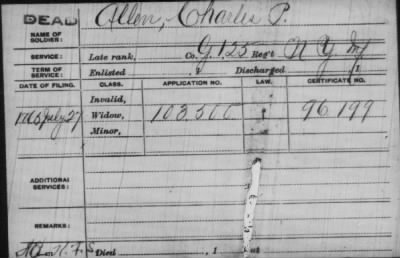 DEAD Allen, Charles P.
NAME OF SOLDIER:
SERVICE: Late rank, Co. G, 125 Reg't N.Y. Inf
TERM OF SERVICE: Enlisted , 1 Discharged , 1
DATE OF FILING. CLASS. APPLICATION NO. LAW. CERTIFICATE NO.
Invalid,
July 27 Widow, 96.199
Minor,
ADDITIONAL SERVICES:
REMARKS:
Died , 1 , at